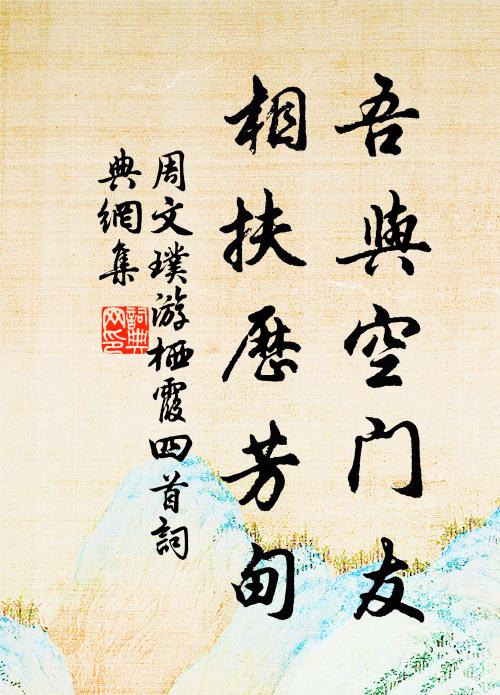 吾與空門友
相扶歷芳甸
周文璞游栖霞四首詞
典網集
詞典
网印